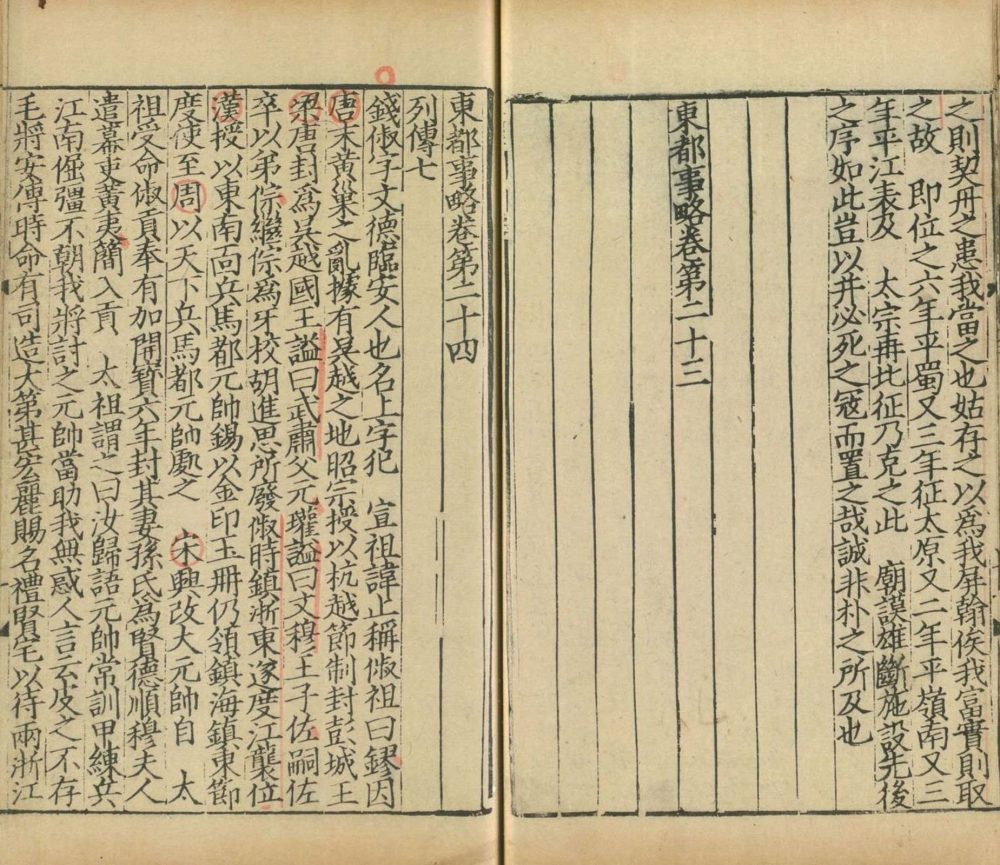 之則契丹之患我當之也姑存之以爲我屏翰俟我富實則取
之故　即位之六年平蜀又三年征太原又二年平嶺南又三
年平江表及　太宗再北征乃克之此　廟謨雄斷施設先後
之序如此豈以并必死之寇而置之哉誠非朴之所及也
東都事略卷第二十三
東都事略卷第二十四
列傳七
錢俶字文德臨安人也名上字犯　宣祖諱止稱俶祖曰鏐因
唐末黃巢之亂據有吳越之地昭宗授以杭越節制封彭城王
梁唐封爲吳越國王謚曰武肅父元瓘謚曰文穆王子佐嗣佐
卒以弟倧繼倧爲牙校胡進思所廢俶時鎮浙東遂度江襲位
漢授以東南面兵馬都元帥錫以金印玉冊仍領鎮海鎮東節
度使至周以天下兵馬都元帥處之　宋興改大元帥自　太
祖受命俶貢奉有加開寶六年封其妻孫氏爲賢德順穆夫人
遣幕吏黃夷簡入貢　太祖謂之曰汝歸語元帥常訓甲練兵
江南倔彊不朝我將討之元帥當助我無惑人言云皮之不存
毛將安傅時命有司造大第甚宏麗賜名禮賢宅以待兩浙江